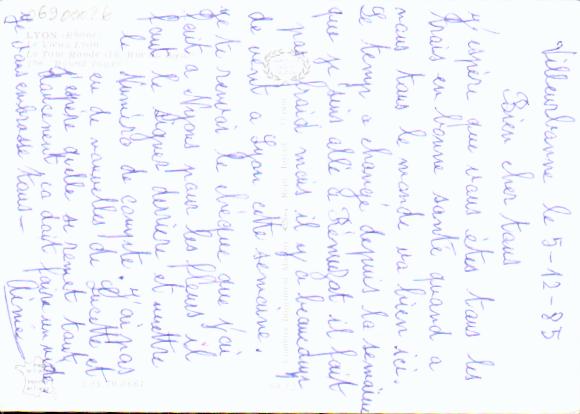 Villeurbanne le 5-12-85
Bien cher tous
J'espère que vous êtes tous les
trois en bonne santé quand a
nous tous le monde va bien ici.
Le temp a changé depuis la semaine
que je suis allé à Rémuzat il fait
pas fraid mais il y a beaucoup
de vent a Lyon cette semaine.
Je te renvoi le chèque que j'ai
fait a Nyons pour les fleurs il
faut le signer derrière et mettre
le numéro de compte. J'ai pas
eu de nouvelles de Lucette et
J'espère qu'elle se remet tout
doucement ça doit faire un vide
Je vous embrasse tous -
Aimée
069 00026
LYON (Rhône)
Le Vieux Lyon